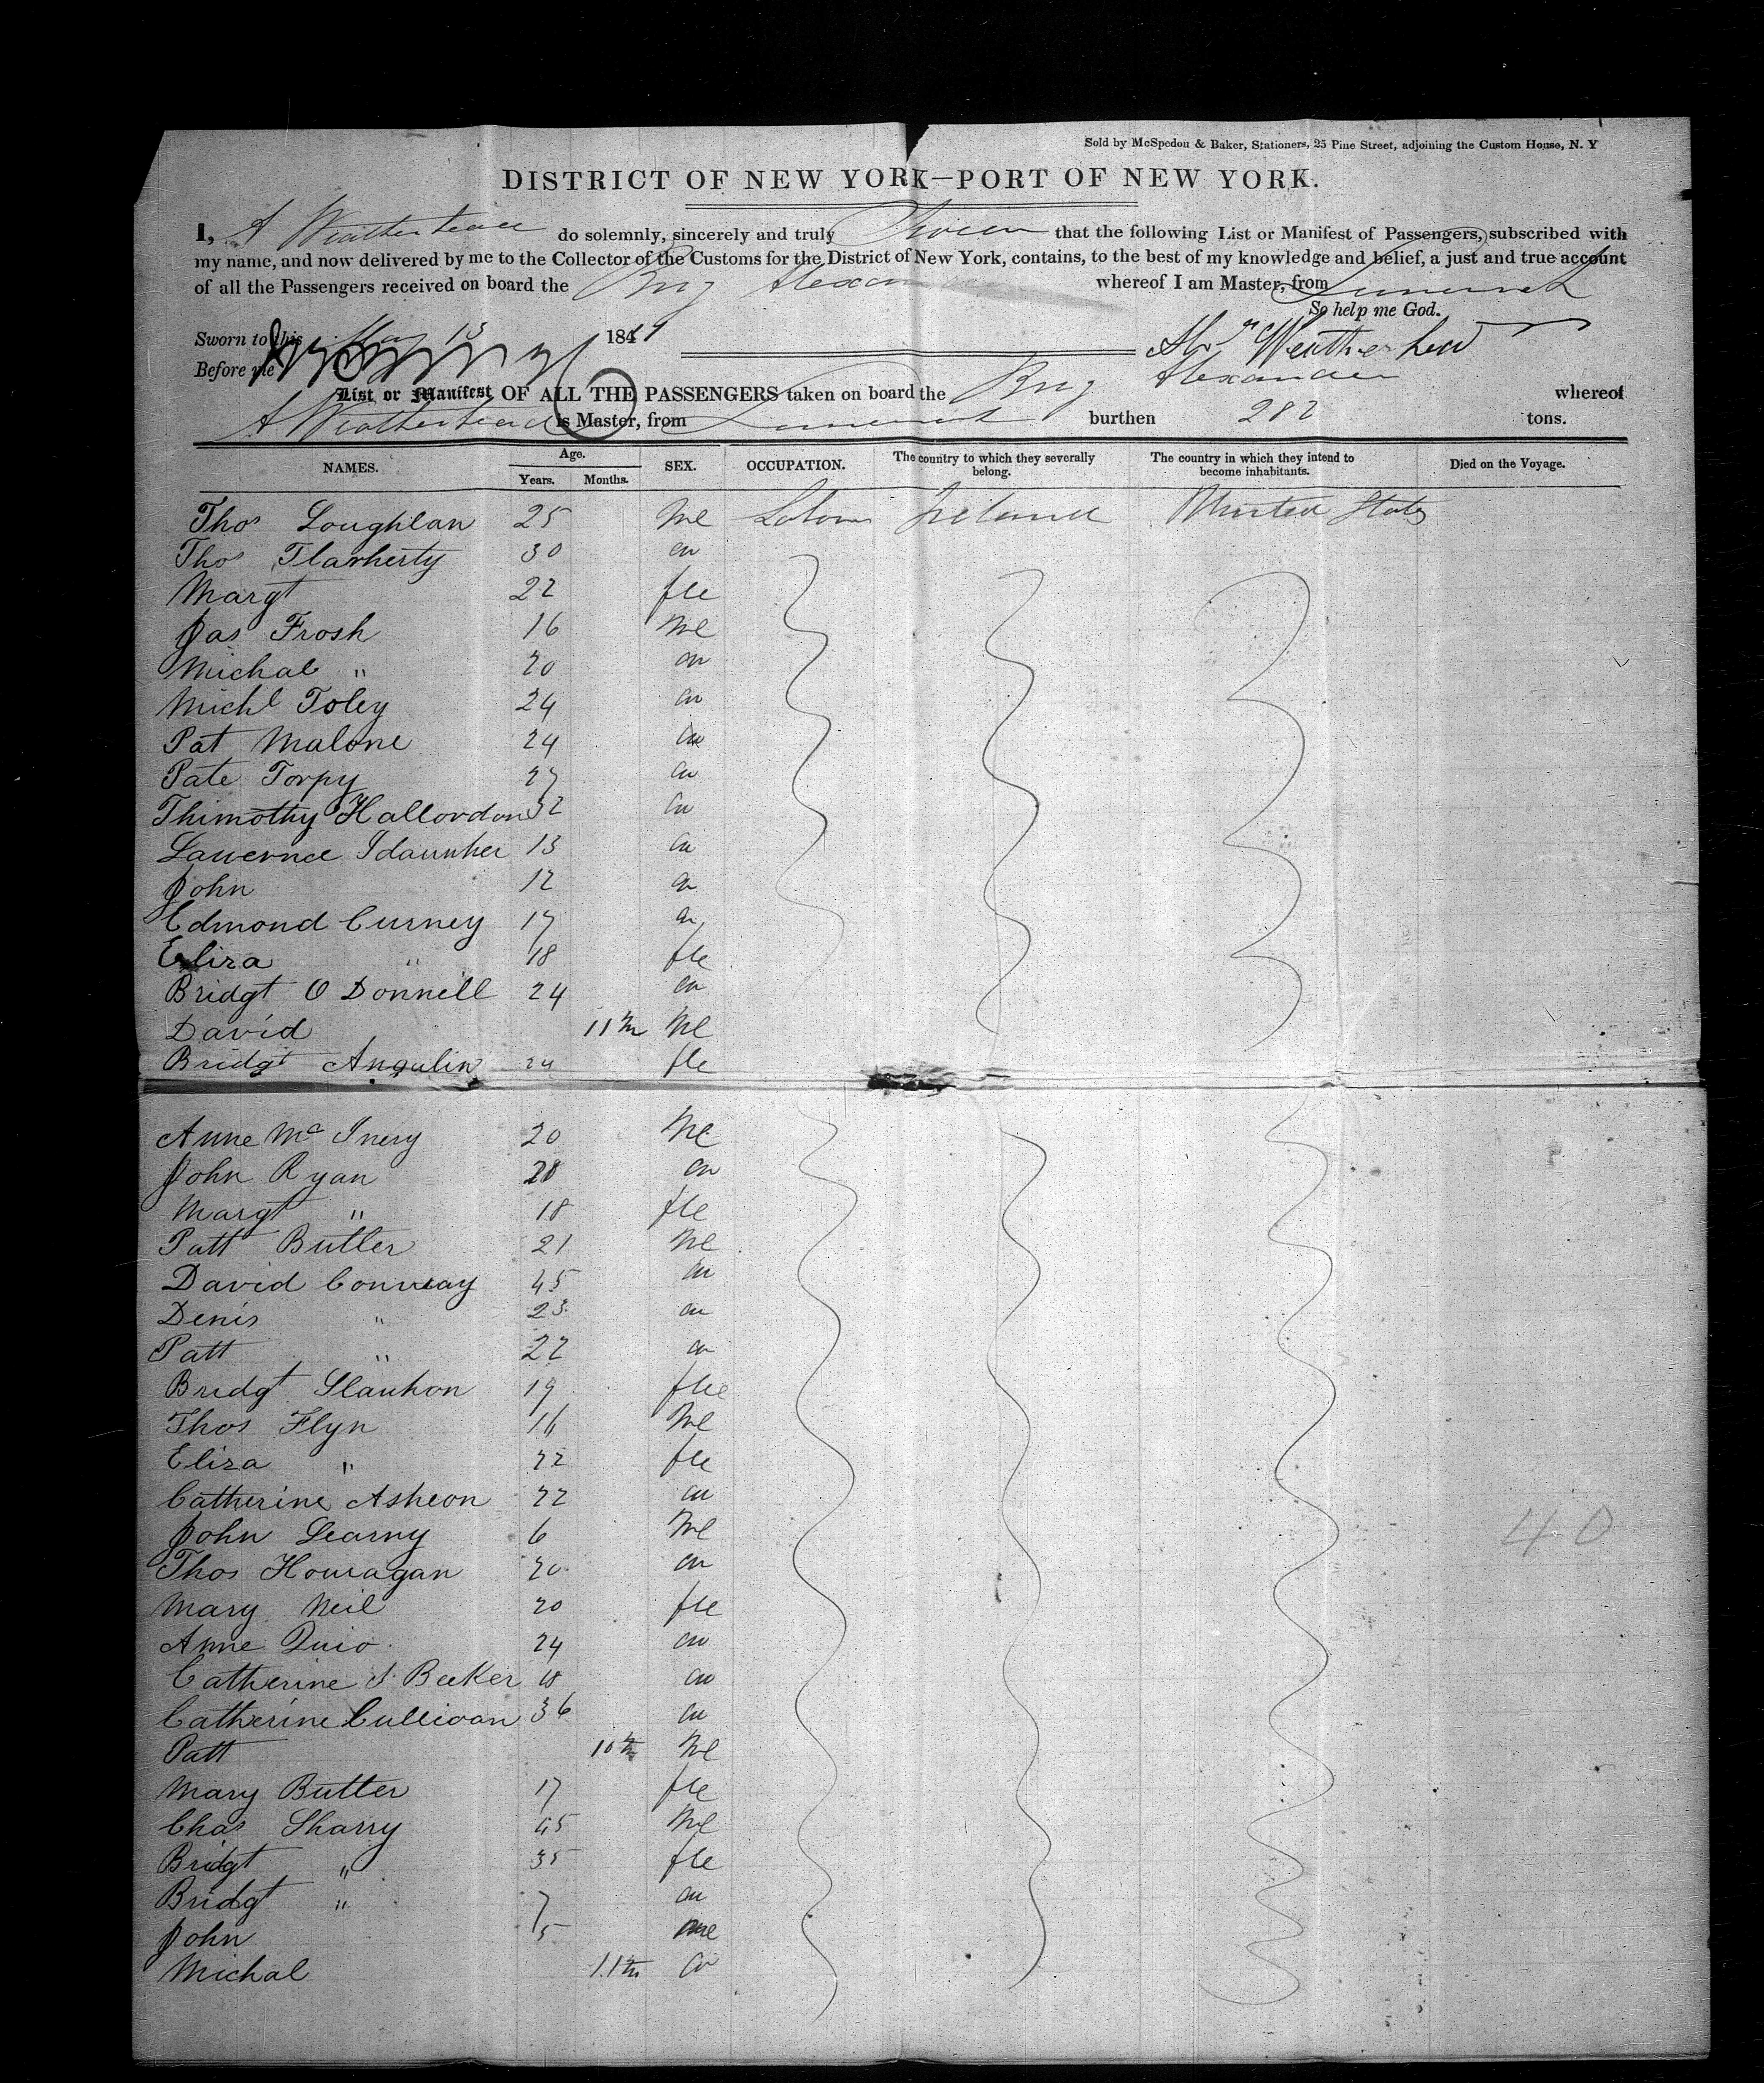 Sold by McSpedon & Baker, Stationers, 25 Pine Street, adjoining the Custom House, N. Y
DISTRICT OF NEW YORK—PORT OF NEW YORK.
I, A Weatherhead do solemnly, sincerely and truly Swear that the following List or Manifest of Passengers, subscribed with
my name, and now delivered by me to the Collector of the Customs for the District of New York, contains, to the best of my knowledge and belief, a just and true account
of all the Passengers received on board the Brig Alexander whereof I am Master, from Limerick
So help me God.
Sworn to this May 13 184
Before me
Weatherhead
List or Manifest OF ALL THE PASSENGERS taken on board the Brig Alexander whereof
A Weatherhead is Master, from Limerick burthen 282 tons.
NAMES. Age. Years. Months. SEX. OCCUPATION. The country to which they severally belong. The country in which they intend to become inhabitants. Died on the Voyage.
Thos Loughlan 25 Me Labour Ireland United States
Thos Flarherty 30 do
Margt 22 fle
Jas Frosh 16 Me
Michal " 20 do
Michl Foley 24 do
Pat Malone 24 do
Pate Torpy 27 do
Thimothy Hallordon 32 do
Lawernce 13 do
John 12 do
Edmond Curney 17 do
Eliza " 18 fle
Bridgt O Donnell 24 do
David 11 m Me
Bridgt Angulin 24 fle
Anne Mc Inery 20 Me
John Ryan 28 do
Margt " 18 fle
Patt Butler 21 Me
David Conway 45 do
Denis " 23 do
Patt " 22 do
Bridgt Slauhon 19 fle
Thos Flyn 16 Me
Eliza " 22 fle
Catherine Asheon 22 do
John Learny 6 Me
Thos Houragan 20 do
Mary Neil 20 fle
Anne Quio 24 do
Catherine S. Beeker 18 do
Catherine Cullivan 36 do
Patt 10 m Me
Mary Butler 17 fle
Chas Sharry 45 Me
Bridgt " 35 fle
Bridgt " 7 do
John 5 me
Michal 11 m do
40